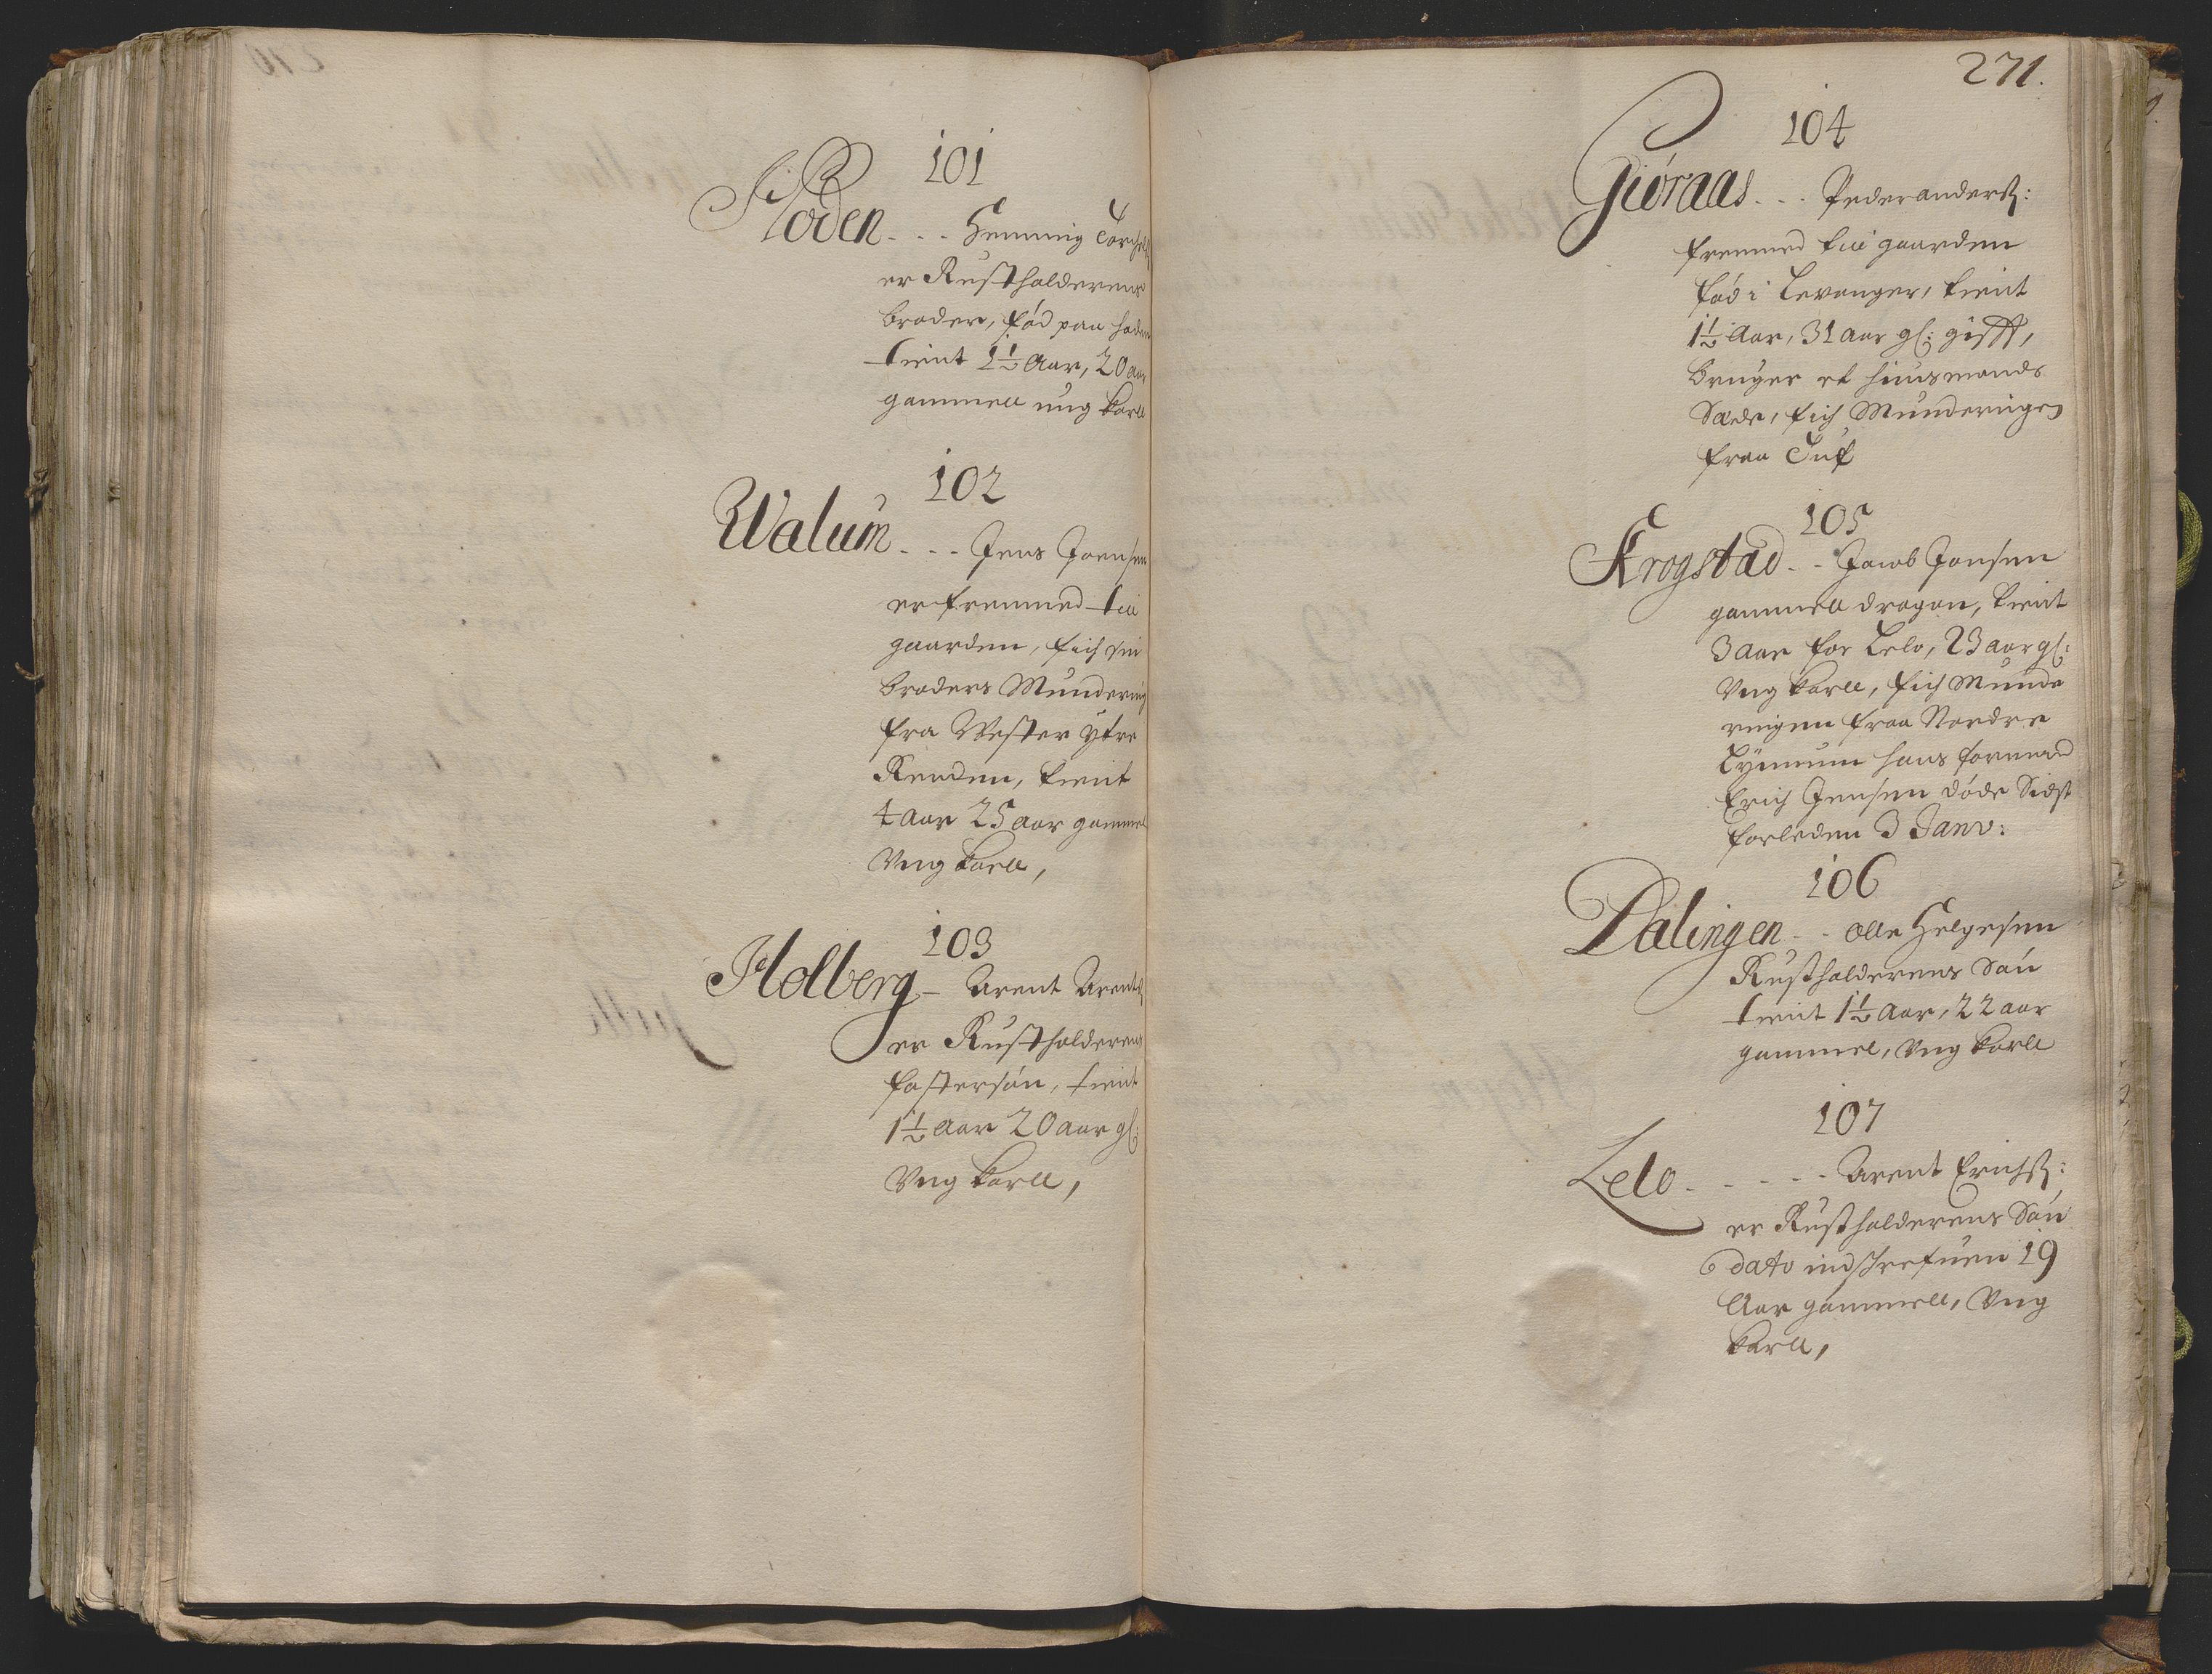 101
Hoden - - - Hemming Torchels
er Rustholderens
broder, fød paa hoden
tient 1½ Aar, 20 aar
gammell ung karll
102
Walum - - - Jens Joensen
er fremmed till
gaarden, fich sin
broders Mundering
fra Wester ytre
Renden, tient
4 Aar 25 aar gammel
Ung karll,
103
Holberg - Arent Arents
er Rustholderens
fostersøn, tient
1½ Aar 20 aar gl:
Ung karll,
271.
104
Giøraas - - - Peder anderss:
fremmed till gaarden
fød i Levanger, tient
1½ Aar, 31 Aar gl: gifft,
bruger et huusmands
Sæde, fich Munderingen
fraa Tuf
105
Krogstad - - Jacob Jonsen
gammell dragon, tient
3 aar for Lelo, 23 aar gl:
Ung karll, fich Munde
ringen fraa Nordre
Lÿmum hans formand
Erich Jensen døde Sidst
forleden 3 Janv:
106
Dalingen - - Olle Helgesen
Rustholderens Søn
tient 1½ Aar, 22 aar
gammel, Ung karll
107
Lelo - - - - - Arent Erichss:
er Rustholderens Søn
dato indschrefuen 19
Aar gammell, Ung
karll,